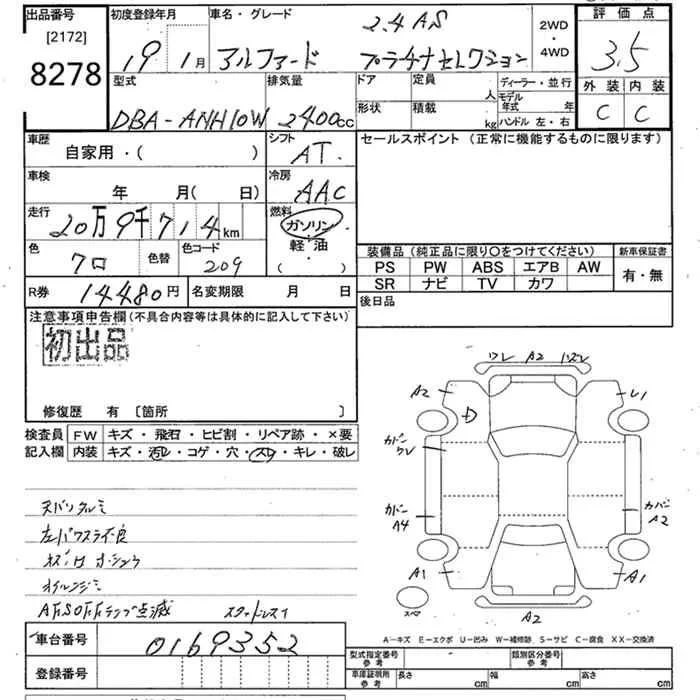 出品番号
[2172]
8278
初度登録年月
19年 1月
車名・グレード
2.4 AS
アルファード プラチナセレクション
2WD
・
4WD
評価点
3.5
外装 内装
C C
型式
DBA-ANH10W
排気量
2400cc
ドア
定員
人
形状
積載
kg
ディーラー・並行
モデル年式 年
ハンドル 左・右
車歴
自家用・( )
シフト
AT.
車検
年 月( 日)
冷房
AAC
走行
20万9千714km
燃料
ガソリン
・
軽油
( ・ )
色
クロ
色替
色コード
209
R券
14480円
名変期限 月 日
セールスポイント (正常に機能するものに限ります)
装備品 (純正品に限り○をつけてください)
PS PW ABS エアB AW
SR ナビ TV カワ
新車保証書
有・無
後日品
注意事項申告欄(不具合内容等は具体的に記入して下さい)
初出品
修復歴 有 〔箇所 〕
検査員
記入欄
FW キズ・飛石・ヒビ割・リペア跡・×要
内装 キズ・汚レ・コゲ・穴・スレ・キレ・破レ
左パワスラ不良
オイルニジミ
AFSOFFランプ点滅 スタッドレス
ワレ A2
A2
D
カバーワレ
カバー A4
カバー A2
A1
A1
A2
スペア
A-キズ E-エクボ U-凹み W-補修跡 S-サビ C-腐食 XX-交換済
車台番号
0169352
登録番号
型式指定番号
参考
類別区分番号
参考
車庫証明用
参考
長さ cm
幅 cm
高さ cm